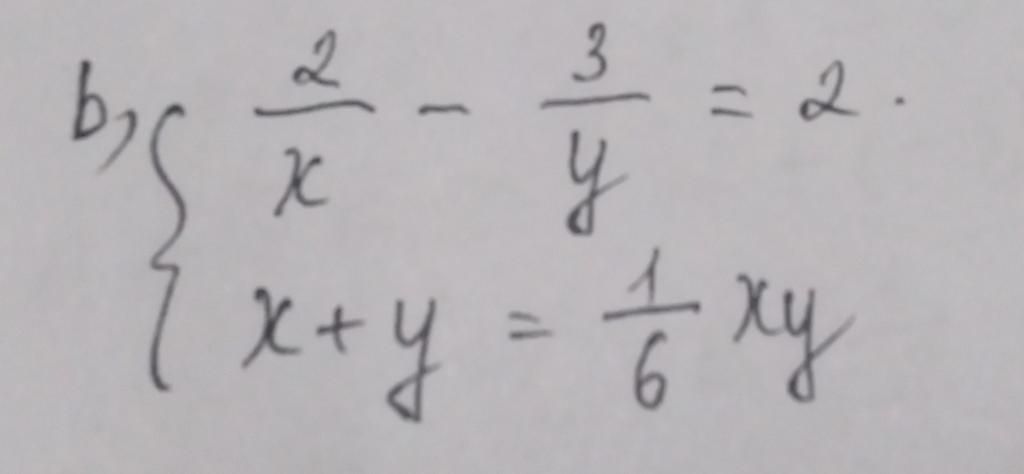 b, { 2/x - 3/y = 2.
x + y = 1/6 xy